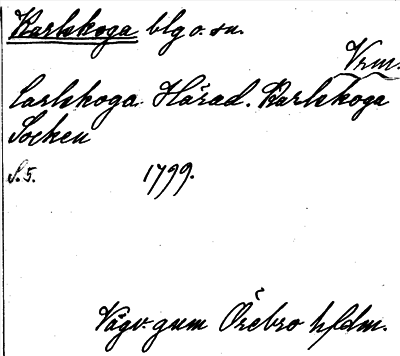 Karlskoga blg o. sn.
Vrm.
Carlskoga Härad. Karlskoga
Socken
S. 5. 1799.
Vägv. gnm Örebro h/fdm.